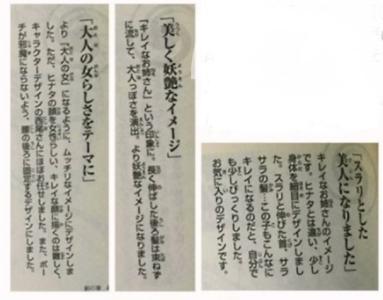 「大人の女らしさをテーマに」
より「大人の女」になるように、ムッチリなイメージにデザインしま
した。ただ、ヒナタの顔を女性らしい、キレイな顔に描くのは難しく、
キャラクターデザインの西尾さんにほぼお任せしました。また、ポー
チが邪魔にならないよう、腰の後ろに固定するデザインにしました。
「美しく妖艶なイメージ」
「キレイなお姉さん」という印象に。長く伸ばした後ろ髪は束ねず
に流して、大人っぽさを演出。より妖艶なイメージになりました。
「スラリとした
美人になりました」
キレイなお姉さんのイメージ
です。ヒナタとは違い、少し
身体を細目にデザインしまし
た。スラリと伸びた背、サラ
サラの髪…この子もこんなに
キレイになるのだと、自分で
も少しびっくりしました。
お気に入りのデザインです。